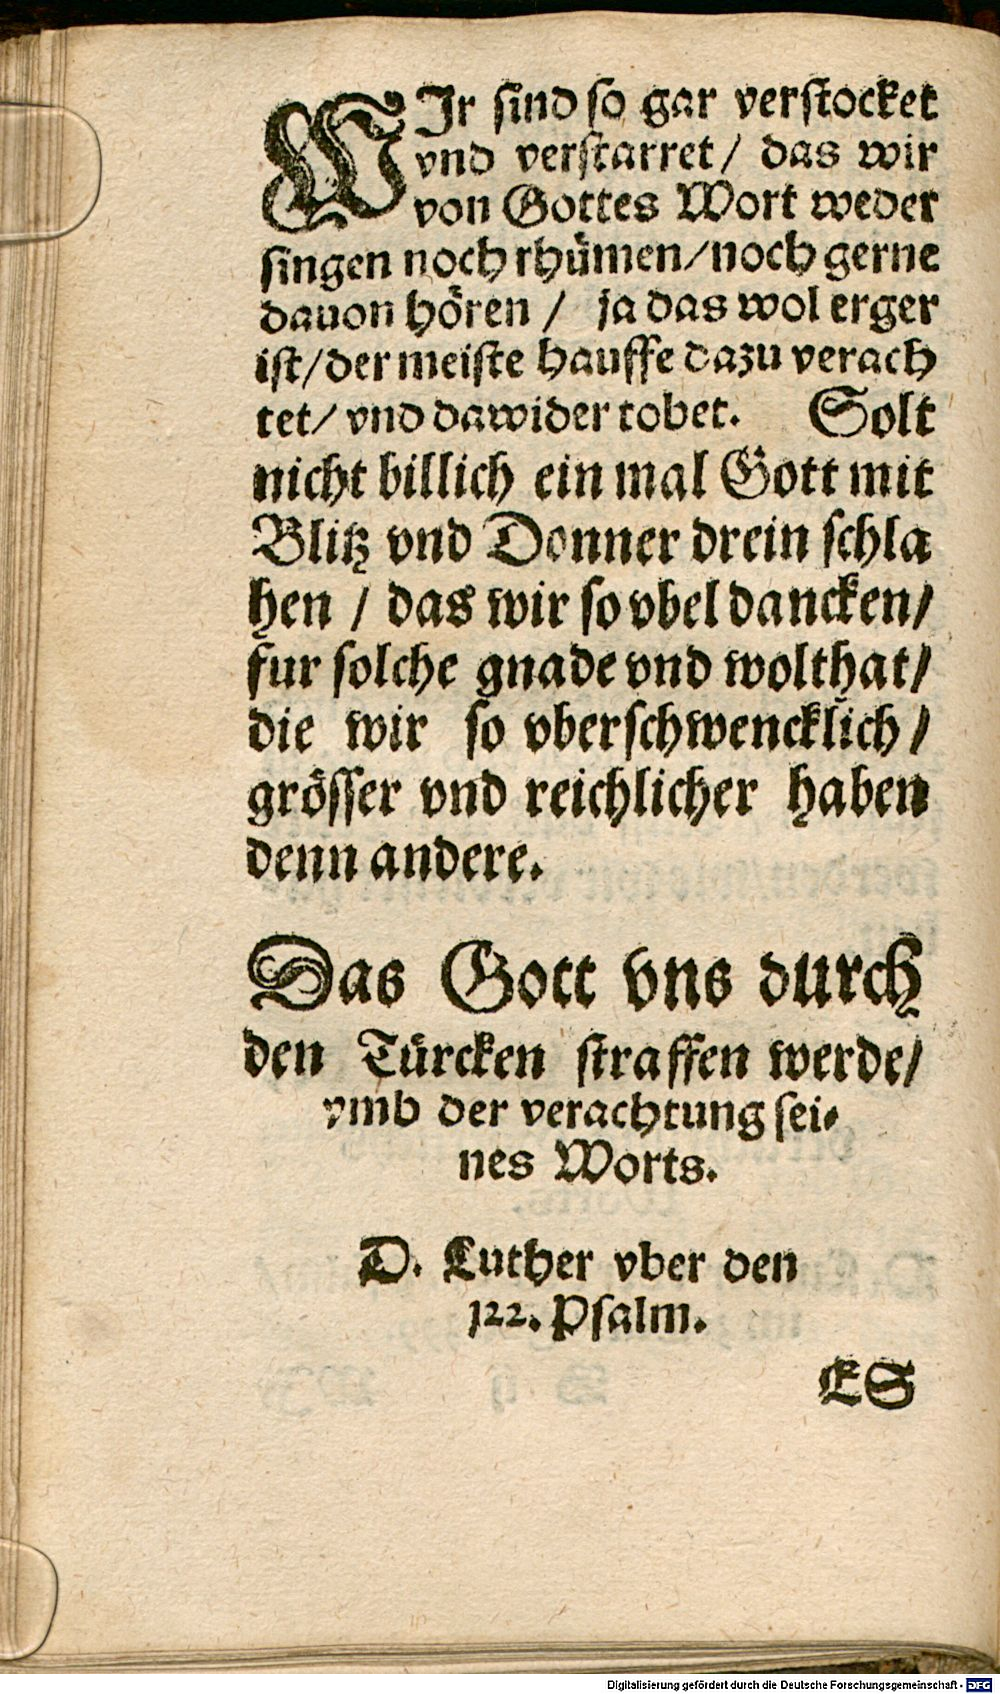 WIr sind so gar verstocket
vnd verstarret / das wir
von Gottes Wort weder
singen noch rhümen / noch gerne
dauon hören / ja das wol erger
ist / der meiste hauffe dazu verach
tet / vnd dawider tobet. Solt
nicht billich ein mal Gott mit
Blitz vnd Donner drein schla
hen / das wir so vbel dancken /
fur solche gnade vnd wolthat /
die wir so vberschwencklich /
grösser vnd reichlicher haben
denn andere.
Das Gott vns durch
den Türcken straffen werde /
vmb der verachtung sei-
nes Worts.
D. Luther vber den
122. Psalm.
ES
Digitalisierung gefördert durch die Deutsche Forschungsgemeinschaft - DFG